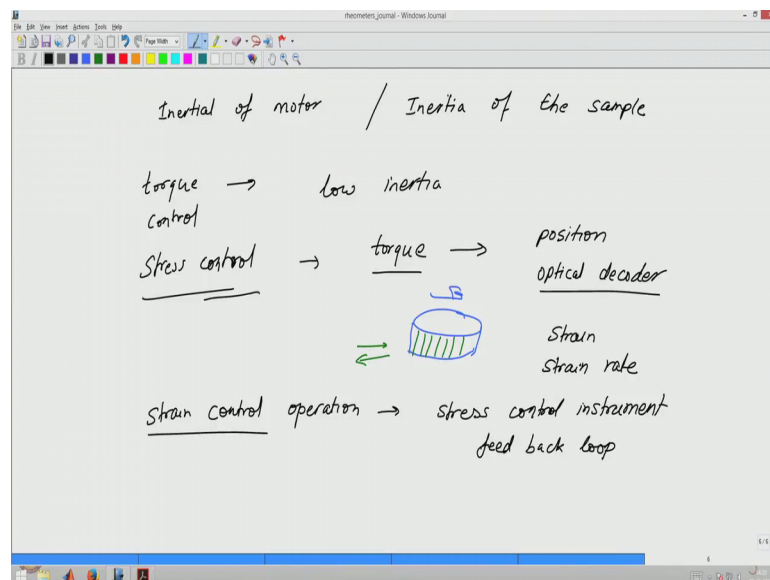 rheometers_journal - Windows Journal
File Edit View Insert Actions Tools Help
Page Width
B I
Inertial of motor / Inertia of the sample
torque → low inertia
control
Stress control → torque → position
optical decoder
Strain
Strain rate
Strain control operation → stress control instrument
feed back loop
6/6
6